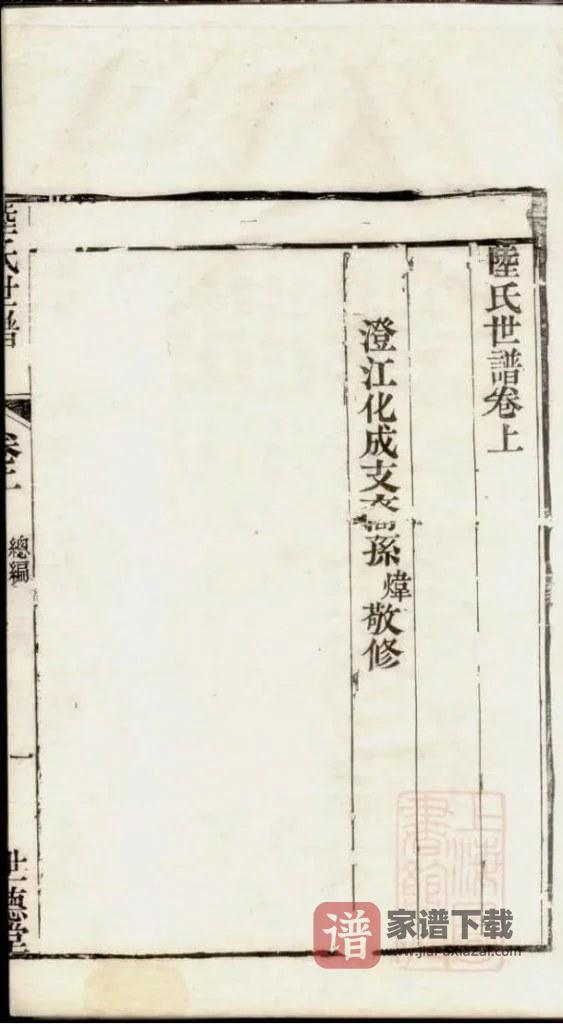 陸氏世譜卷上
澄江化成支裔孫煒敬修
陸氏世譜
卷上
總編
一
世德堂
上海
書館
谱
家谱下载
www.jiapuxiazai.com